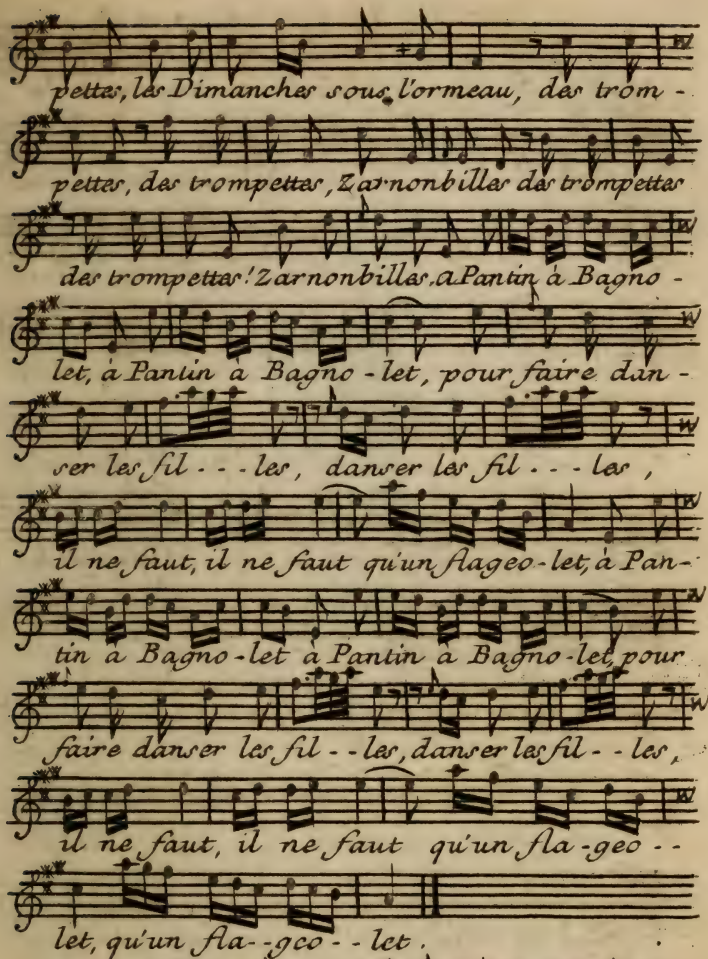 pettes, les Dimanches sous l'ormeau, des trom -
pettes, des trompettes, Zarnonbilles des trompettes
des trompettes! Zarnonbilles, a Pantin à Bagno -
let, à Pantin à Bagno - let, pour faire dan -
ser les fil - - - les, danser les fil - - - les,
il ne faut, il ne faut qu'un flageo - let, à Pan -
tin à Bagno - let à Pantin à Bagno - let, pour
faire danser les fil - - les, danser les fil - - les,
il ne faut, il ne faut qu'un fla - geo - -
let, qu'un fla - - geo - - let.